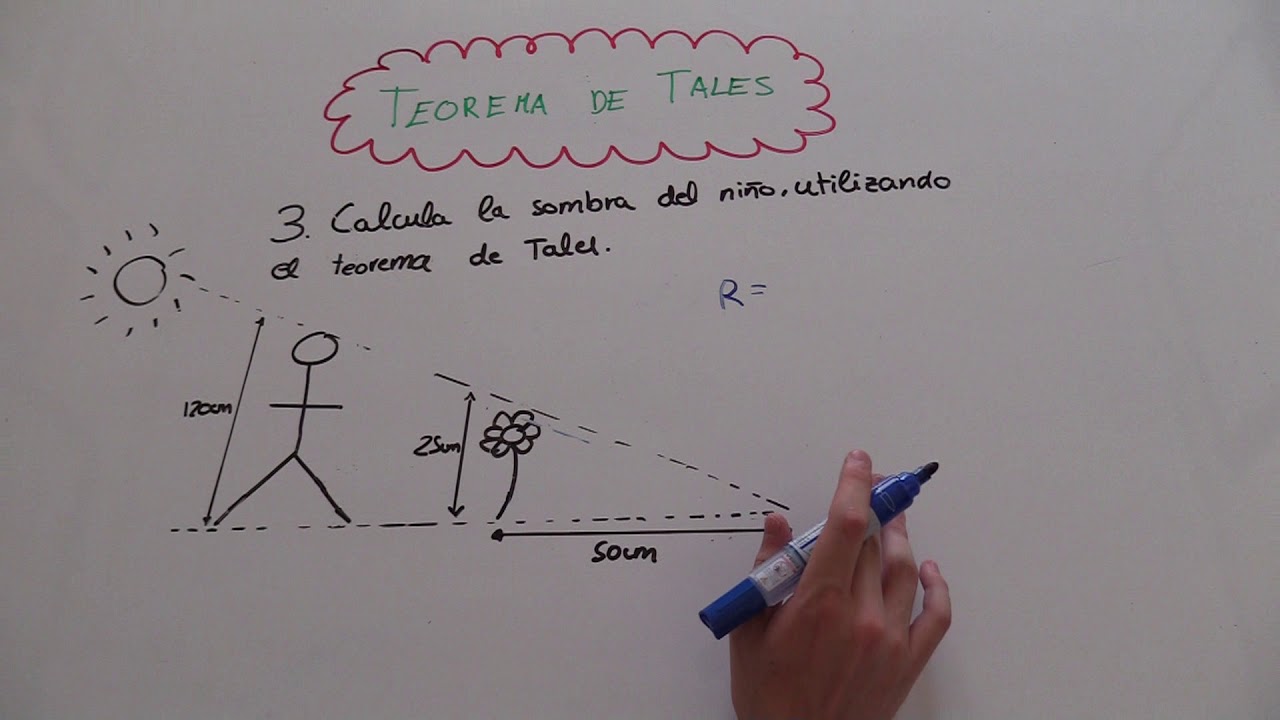 TEOREMA DE TALES
3. Calcula la sombra del niño, utilizando
el teorema de Tales.
R=
120cm
25cm
50cm